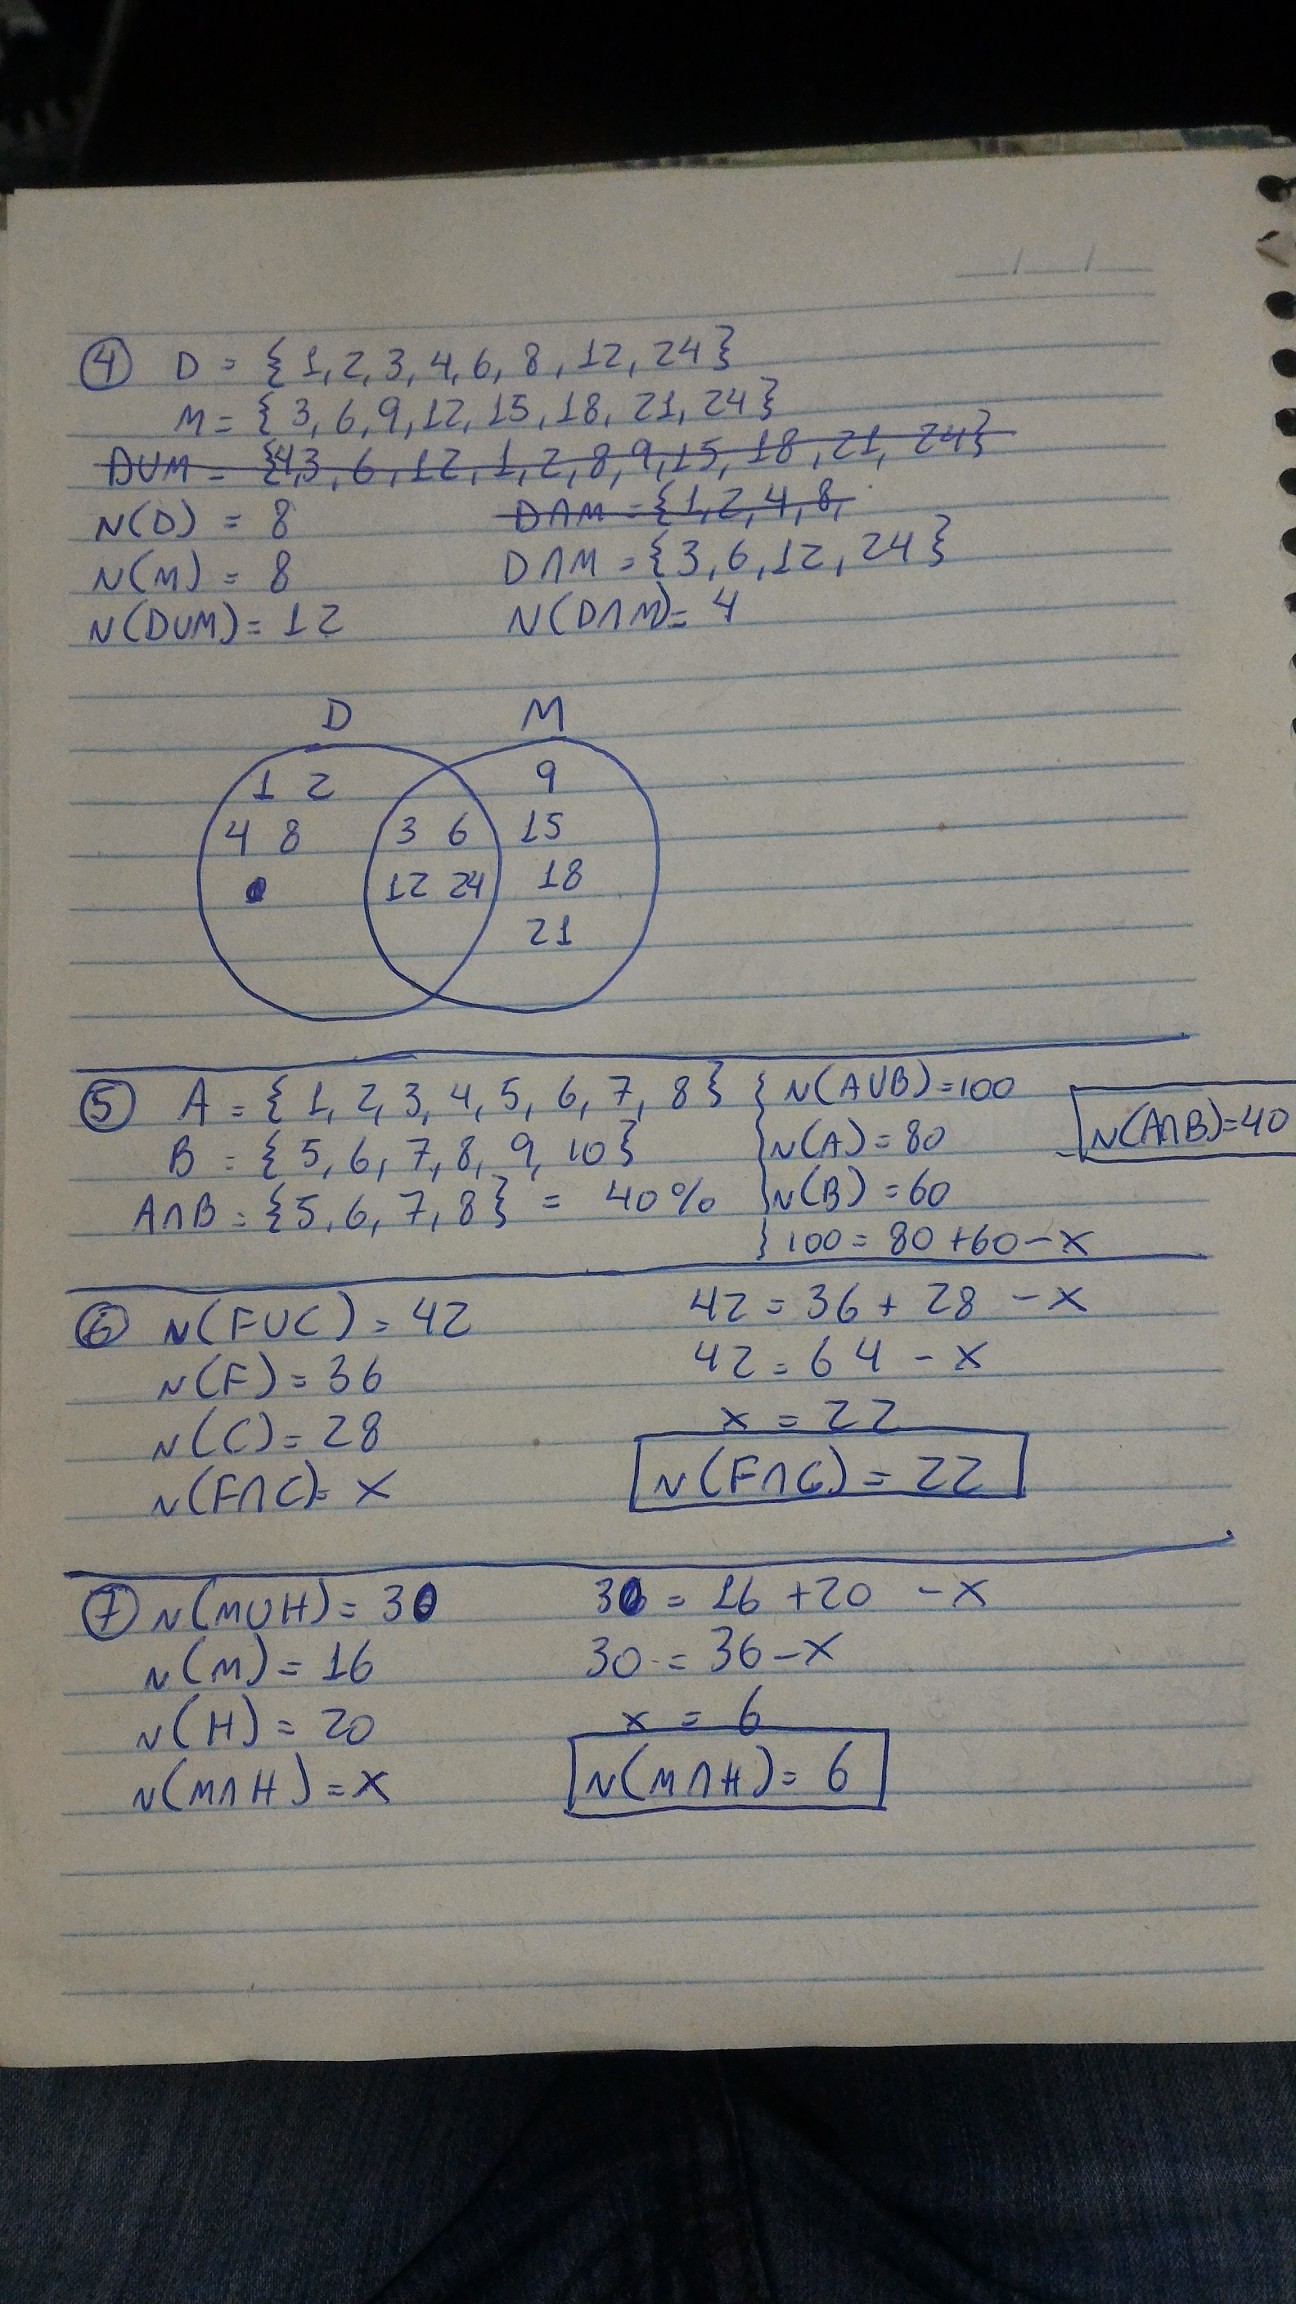 ④ D = { 1, 2, 3, 4, 6, 8, 12, 24 }
M = { 3, 6, 9, 12, 15, 18, 21, 24 }
DUM = {4,3, 6, 12, 1, 2, 8, 9, 15, 18, 21, 24}
N(D) = 8
D∩M = {1, 2, 4, 8,
N(M) = 8
D∩M = {3, 6, 12, 24 }
N(DUM) = 12
N(D∩M) = 4
D M
1 2
9
4 8
3 6
15
12 24
18
21
⑤ A = { 1, 2, 3, 4, 5, 6, 7, 8 }
B = { 5, 6, 7, 8, 9, 10 }
A∩B = { 5, 6, 7, 8 } = 40%
{ N(AUB) = 100
N(A) = 80
N(B) = 60
100 = 80 + 60 - x
N(A∩B) = 40
⑥ N(FUC) = 42
N(F) = 36
N(C) = 28
N(F∩C) = x
42 = 36 + 28 - x
42 = 64 - x
x = 22
N(F∩C) = 22
⑦ N(MUH) = 30
N(M) = 16
N(H) = 20
N(M∩H) = x
30 = 16 + 20 - x
30 = 36 - x
x = 6
N(M∩H) = 6